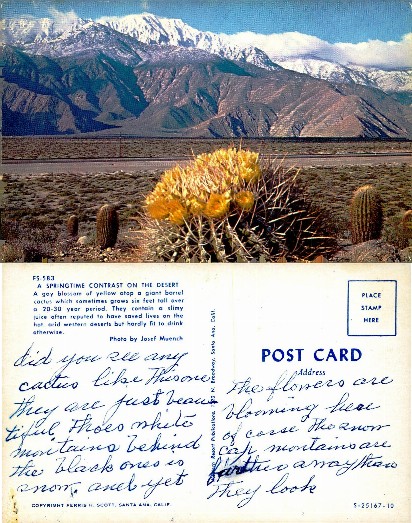 FS-583
A SPRINGTIME CONTRAST ON THE DESERT
A gay blossom of yellow atop a giant barrel
cactus which sometimes grows six feet tall over
a 20-30 year period. They contain a slimy
juice often reputed to have saved lives on the
hot arid western deserts but hardly fit to drink
otherwise.
Photo by Josef Muench
did you see any
cactus like this one
they are just beau
tiful Thoes white
montains behind
the black ones is
snow, and yet
COPYRIGHT FERRIS H. SCOTT, SANTA ANA, CALIF.
Western Resort Publications, N. Broadway, Santa Ana, Calif.
PLACE
STAMP
HERE
POST CARD
Address
the flowers are
blooming here
of corse the snow
cap montains are
farther away than
they look
S-25167-10